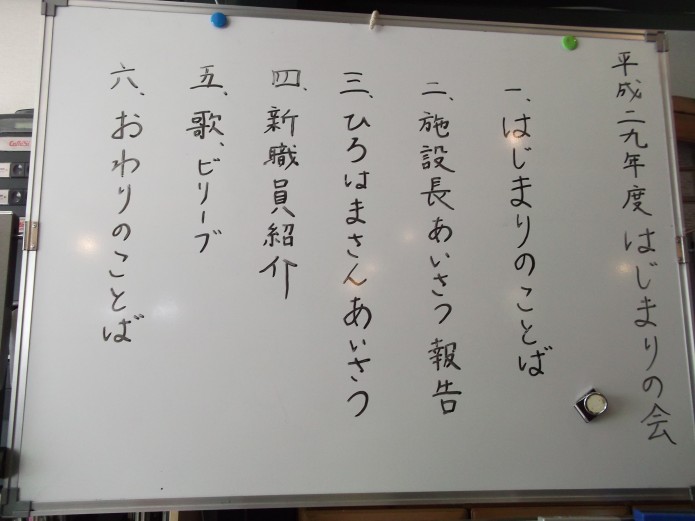 平成二九年度 はじまりの会
一、はじまりのことば
二、施設長あいさつ 報告
三、ひろはまさんあいさつ
四、新職員紹介
五、歌、ビリーブ
六、おわりのことば